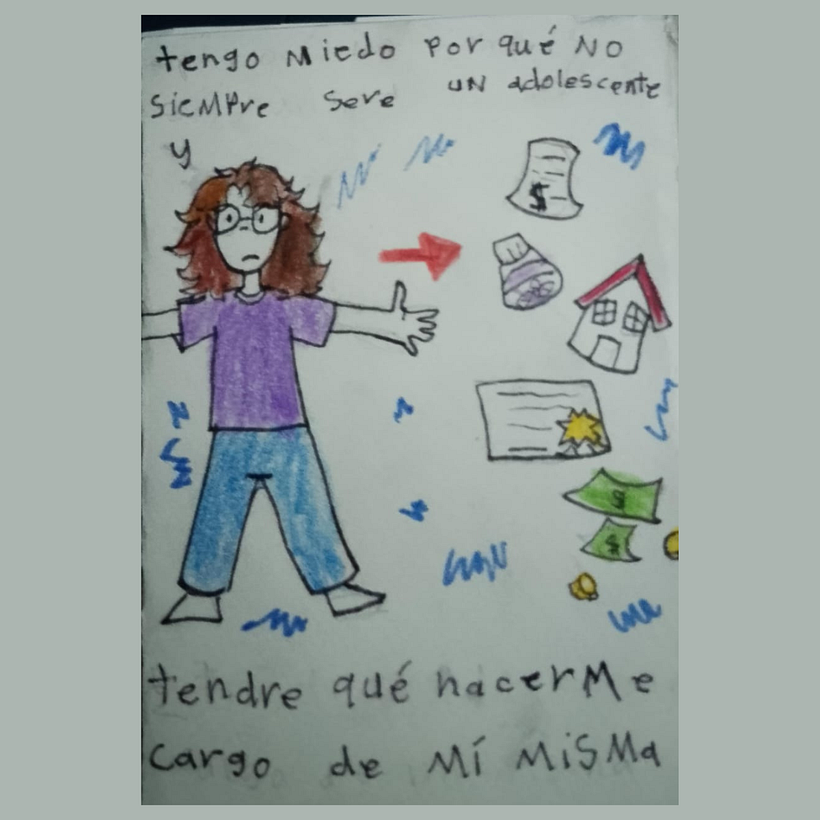 tengo miedo por qué no
siempre sere un adolescente
y
$
$
$
tendre qué hacerme
cargo de mí misma